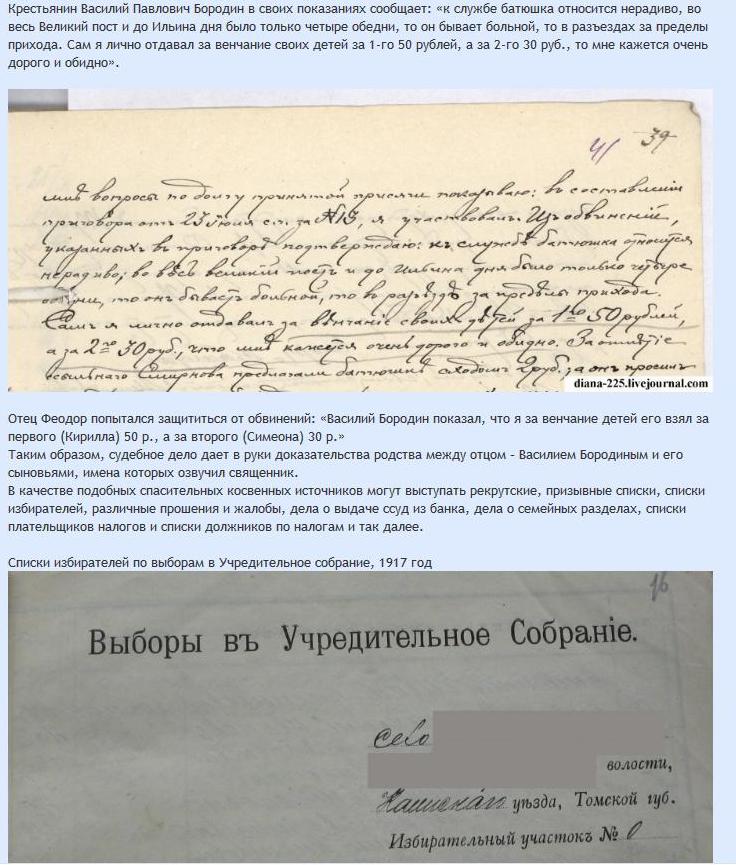 Крестьянин Василий Павлович Бородин в своих показаниях сообщает: «к службе батюшка относится нерадиво, во
весь Великий пост и до Ильина дня было только четыре обедни, то он бывает больной, то в разъездах за пределы
прихода. Сам я лично отдавал за венчание своих детей за 1-го 50 рублей, а за 2-го 30 руб., то мне кажется очень
дорого и обидно».
39
мнѣ вопросы по долгу принятой присяги показываю: въ составленіи
приговора отъ 23 іюля с.г. за №13, я участвовалъ. Изъ обвиненій,
указанныхъ въ приговорѣ подтверждаю: къ службѣ батюшка относится
нерадиво; во весь великій постъ и до Ильина дня было только четыре
обѣдни, то онъ бываетъ больной, то въ разъѣздѣ за предѣлы прихода.
Самъ я лично отдавалъ за вѣнчаніе своихъ дѣтей за 1го 50 рублей,
а за 2го 30 руб., что мнѣ кажется очень дорого и обидно. За отпѣтіе
ссыльнаго Смирнова предлагали батюшкѣ сходомъ 2 руб., а онъ просилъ
diana-225.livejournal.com
Отец Феодор попытался защититься от обвинений: «Василий Бородин показал, что я за венчание детей его взял за
первого (Кирилла) 50 р., а за второго (Симеона) 30 р.»
Таким образом, судебное дело дает в руки доказательства родства между отцом - Василием Бородиным и его
сыновьями, имена которых озвучил священник.
В качестве подобных спасительных косвенных источников могут выступать рекрутские, призывные списки, списки
избирателей, различные прошения и жалобы, дела о выдаче ссуд из банка, дела о семейных разделах, списки
плательщиков налогов и списки должников по налогам и так далее.
Списки избирателей по выборам в Учредительное собрание, 1917 год
16
Выборы въ Учредительное Собраніе.
Село
волости,
Каинскаго уѣзда, Томской губ.
Избирательный участокъ №